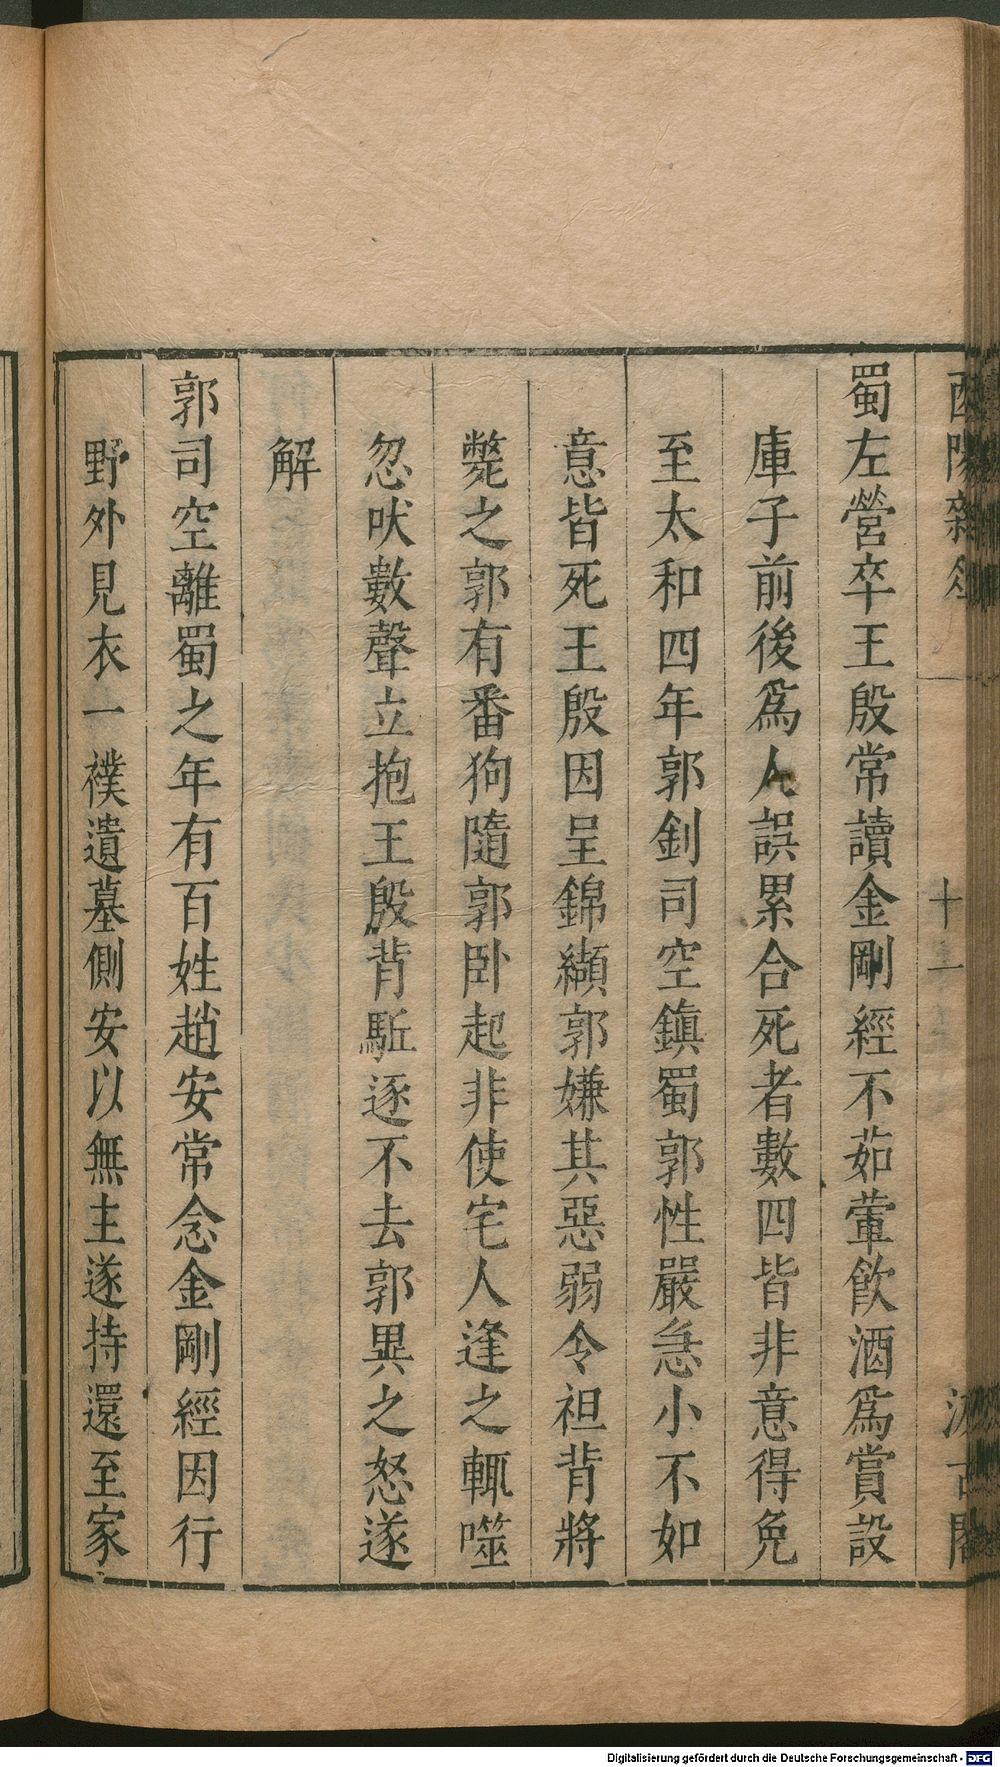 酉陽雜俎
十一
汲古閣
蜀左營卒王殷常讀金剛經不茹葷飮酒爲賞設
庫子前後爲人誤累合死者數四皆非意得免
至太和四年郭釗司空鎭蜀郭性嚴急小不如
意皆死王殷因呈錦纈郭嫌其惡弱令袒背將
斃之郭有番狗隨郭卧起非使宅人逢之輒噬
忽吠數聲立抱王殷背駈逐不去郭異之怒遂
解
郭司空離蜀之年有百姓趙安常念金剛經因行
野外見衣一襆遺墓側安以無主遂持還至家
Digitalisierung gefördert durch die Deutsche Forschungsgemeinschaft - DFG